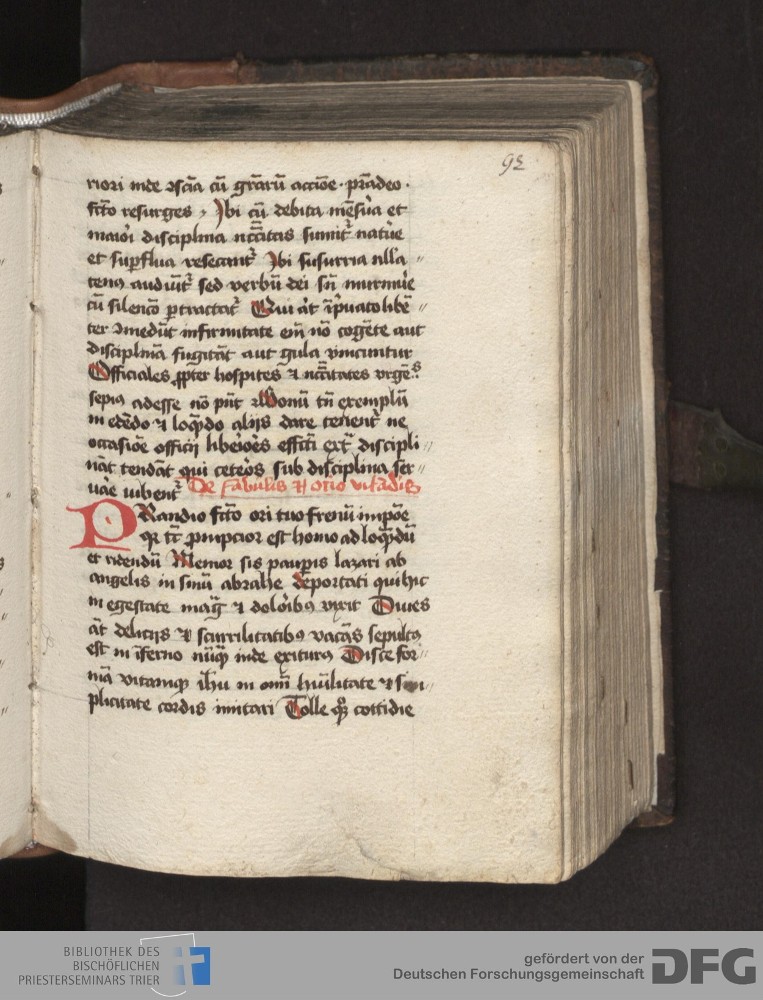 92
riori inde ɔsc̄ia cū gr̄aꝝ acciōe · prādeo ·
fc̄to resurges , Ibi cū debita mēsūa et
maiōi disciplina nc̄c̄itas sumit᷑ natūe
et suꝑflua resecant᷑ Ibi susurria nll'a
tenꝰ audiūt᷑ sed verbū dei sn̄ murmūe
cū silencō ꝑtractat᷑ Qui āt īpuato libē
ter ɔmedūt infirmitate em̄ nō cogēte aut
disciplinā fugitāt aut gula vincuntur
Officiales ꝓpter hospites ⁊ nc̄c̄itates vrgēs
sepiꝰ adesse nō pn̄t Bonū tn̄ exemplū
in edēdo ⁊ loqn̄do alijs dare tenent᷑ ne
occasiōe officij libeiōes effc̄ti ext᷑ discipli
nāt tendāt qui cetōs sub disciplina ser
uāe iubent᷑ De fabulis ⁊ otio vitādis
PRandio fc̄to ori tuo frenū impōe
qꝛ tc̄ ꝓmpcior est homo ad loqn̄dū
et ridendū Memor sis pauꝑis lazari ab
angelis in sinū abrahe deportati qui hic
in egestate mag᷑ ⁊ dolōibꝰ vixit Diues
āt delicijs ⁊ scurrilitatibꝰ vacās sepultꝰ
est in īferno nūqȝ inde exiturꝰ Disce for
mā vitamqȝ ih̄u in om̄i hūilitate ⁊ sim
plicitate cordis imitari Tolle qꝛ cottidie
BIBLIOTHEK DES
BISCHÖFLICHEN
PRIESTERSEMINARS TRIER
gefördert von der
Deutschen Forschungsgemeinschaft
DFG